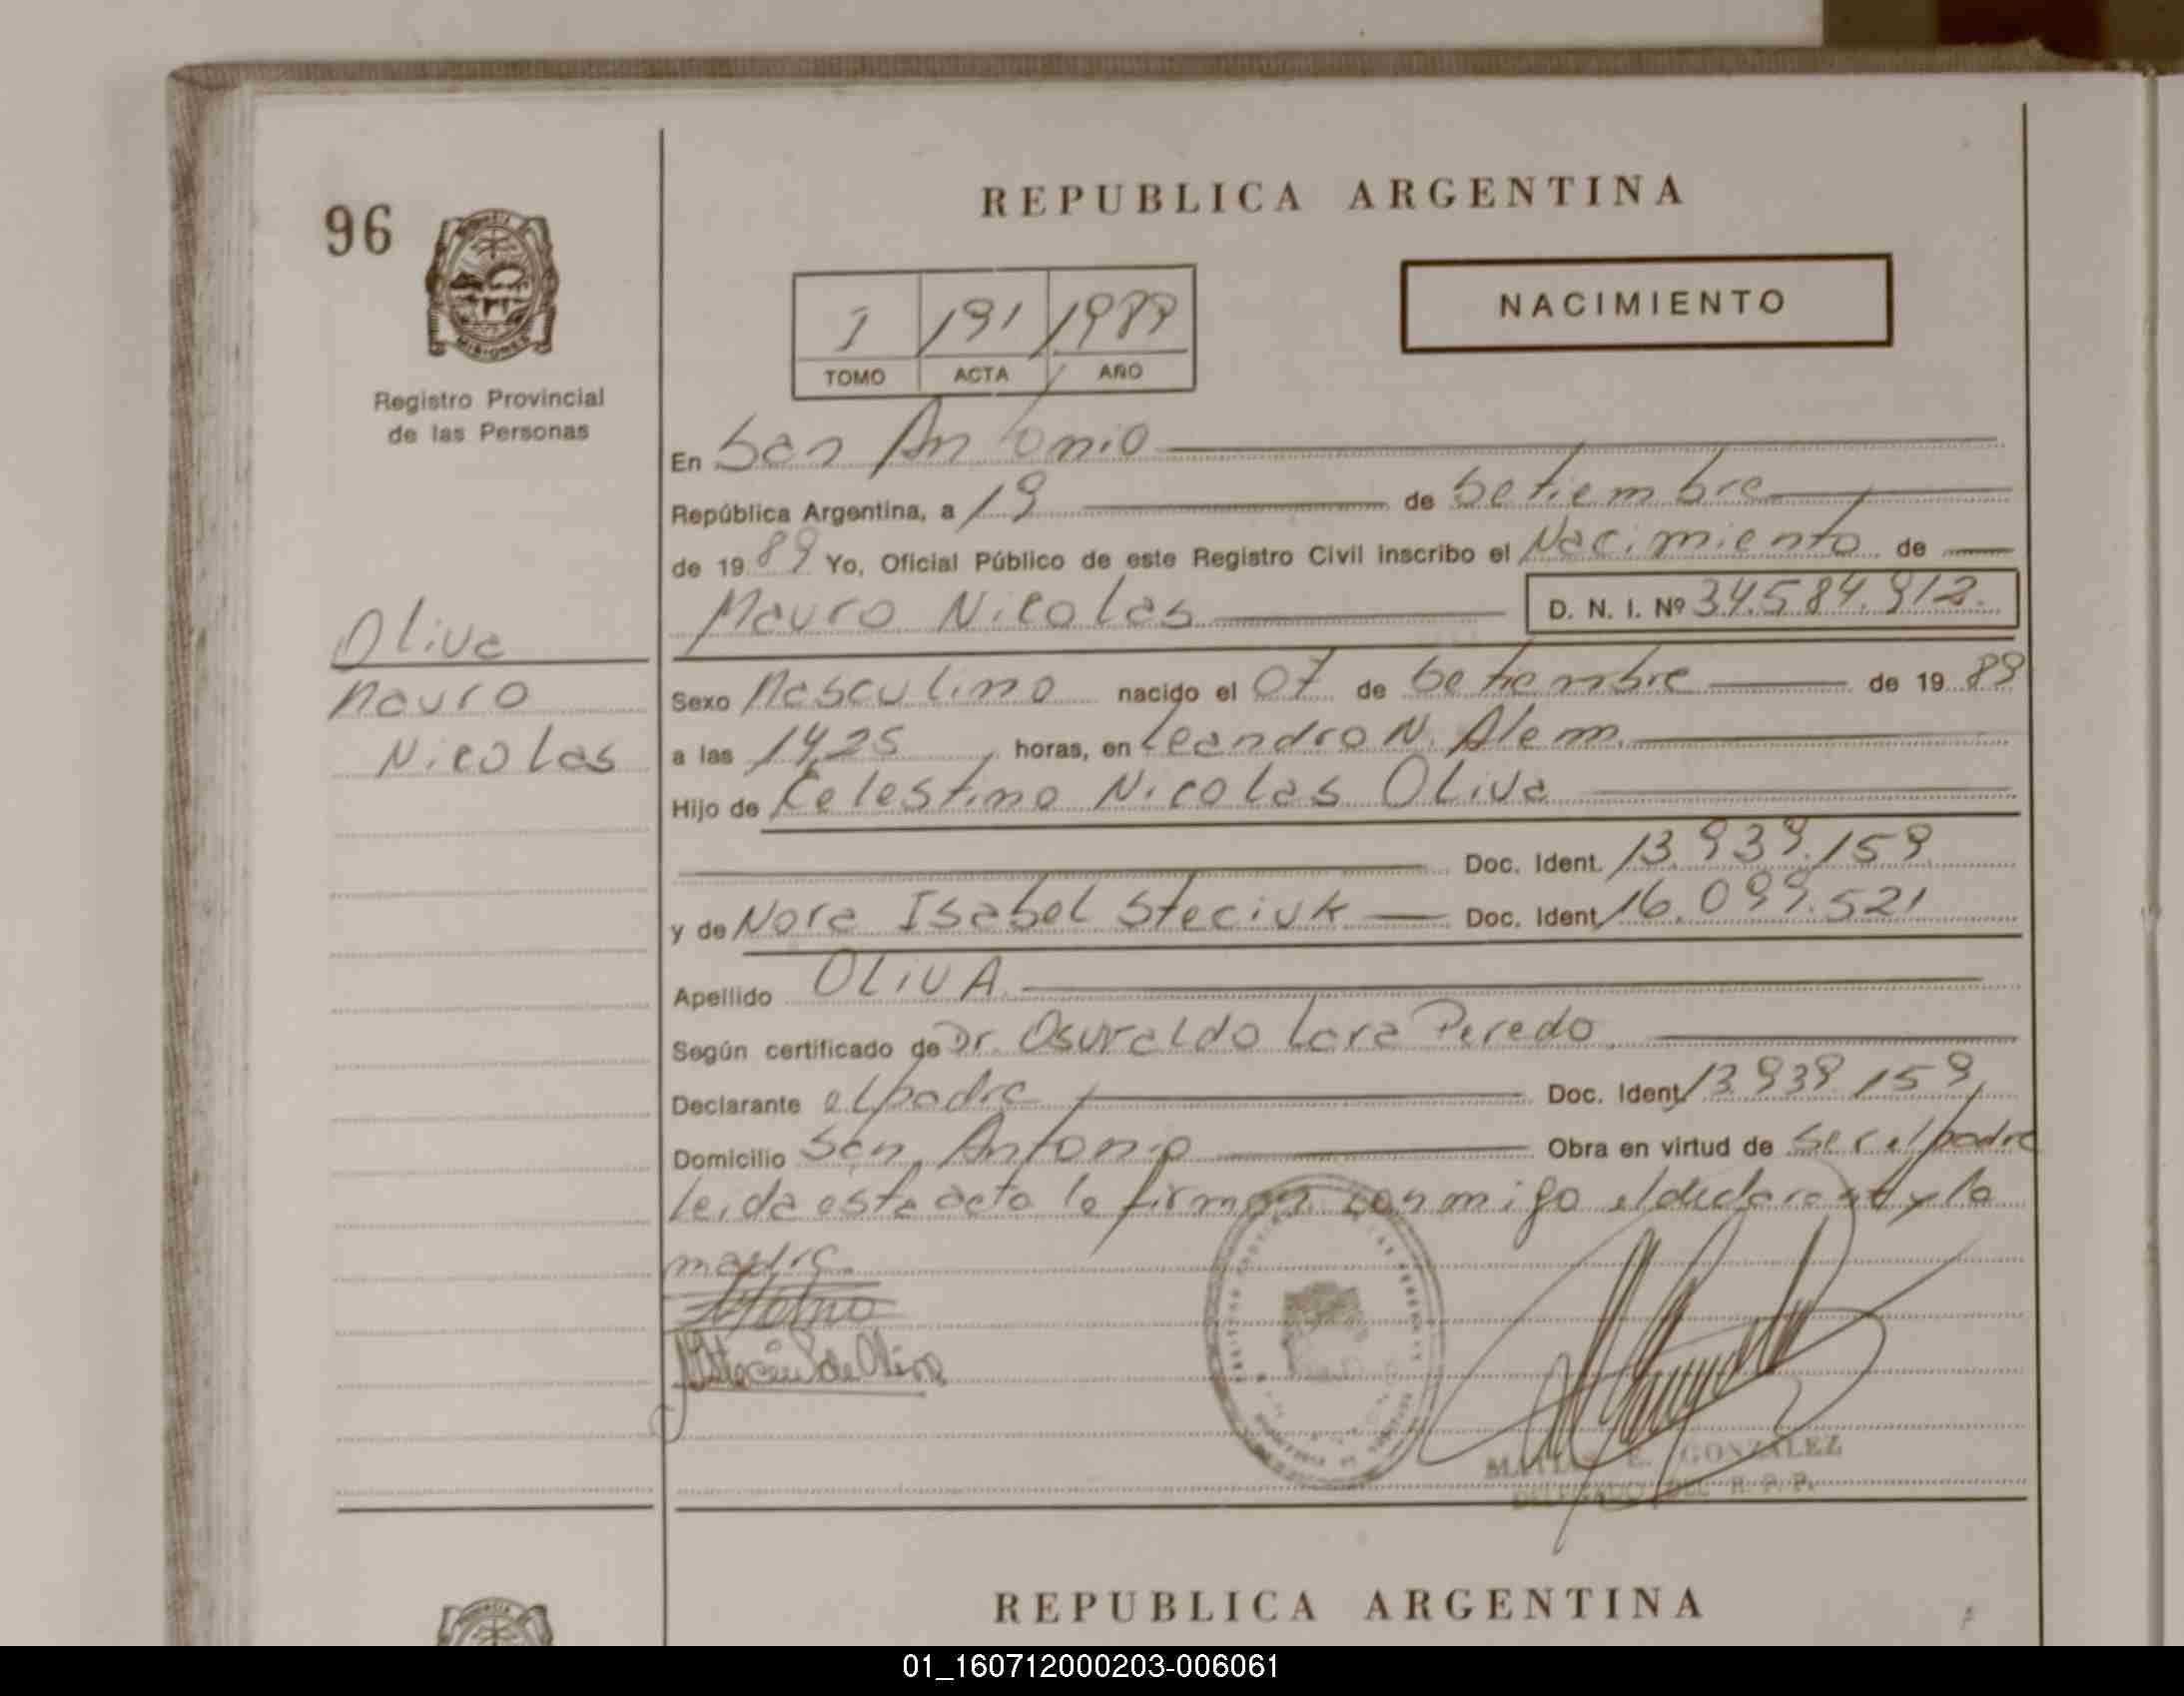 REPUBLICA ARGENTINA
96
NACIMIENTO
I 191 1989
TOMO ACTA AÑO
MISIONES
Registro Provincial
de las Personas
En San Antonio
República Argentina, a 19 de Setiembre
de 1989 Yo, Oficial Público de este Registro Civil inscribo el Nacimiento de
Mauro Nicolas D. N. I. Nº 34.584.912.
Oliva
Mauro
Nicolas
Sexo Masculino nacido el 07 de Setiembre de 1989
a las 14,25 horas, en Leandro N. Alem.
Hijo de Celestino Nicolas Oliva
Doc. Ident. 13.939.159
y de Nora Isabel Steciuk Doc. Ident. 16.099.521
Apellido OLIVA
Según certificado de Dr. Osvaldo Lara Peredo.
Declarante el padre Doc. Ident. 13.939.159,
Domicilio San Antonio Obra en virtud de ser el padre
Leida este acta la firman conmigo el declarante y la
madre.
E. GONZALEZ
DELEGADO DEL R. P. P.
REPUBLICA ARGENTINA
01_160712000203-006061